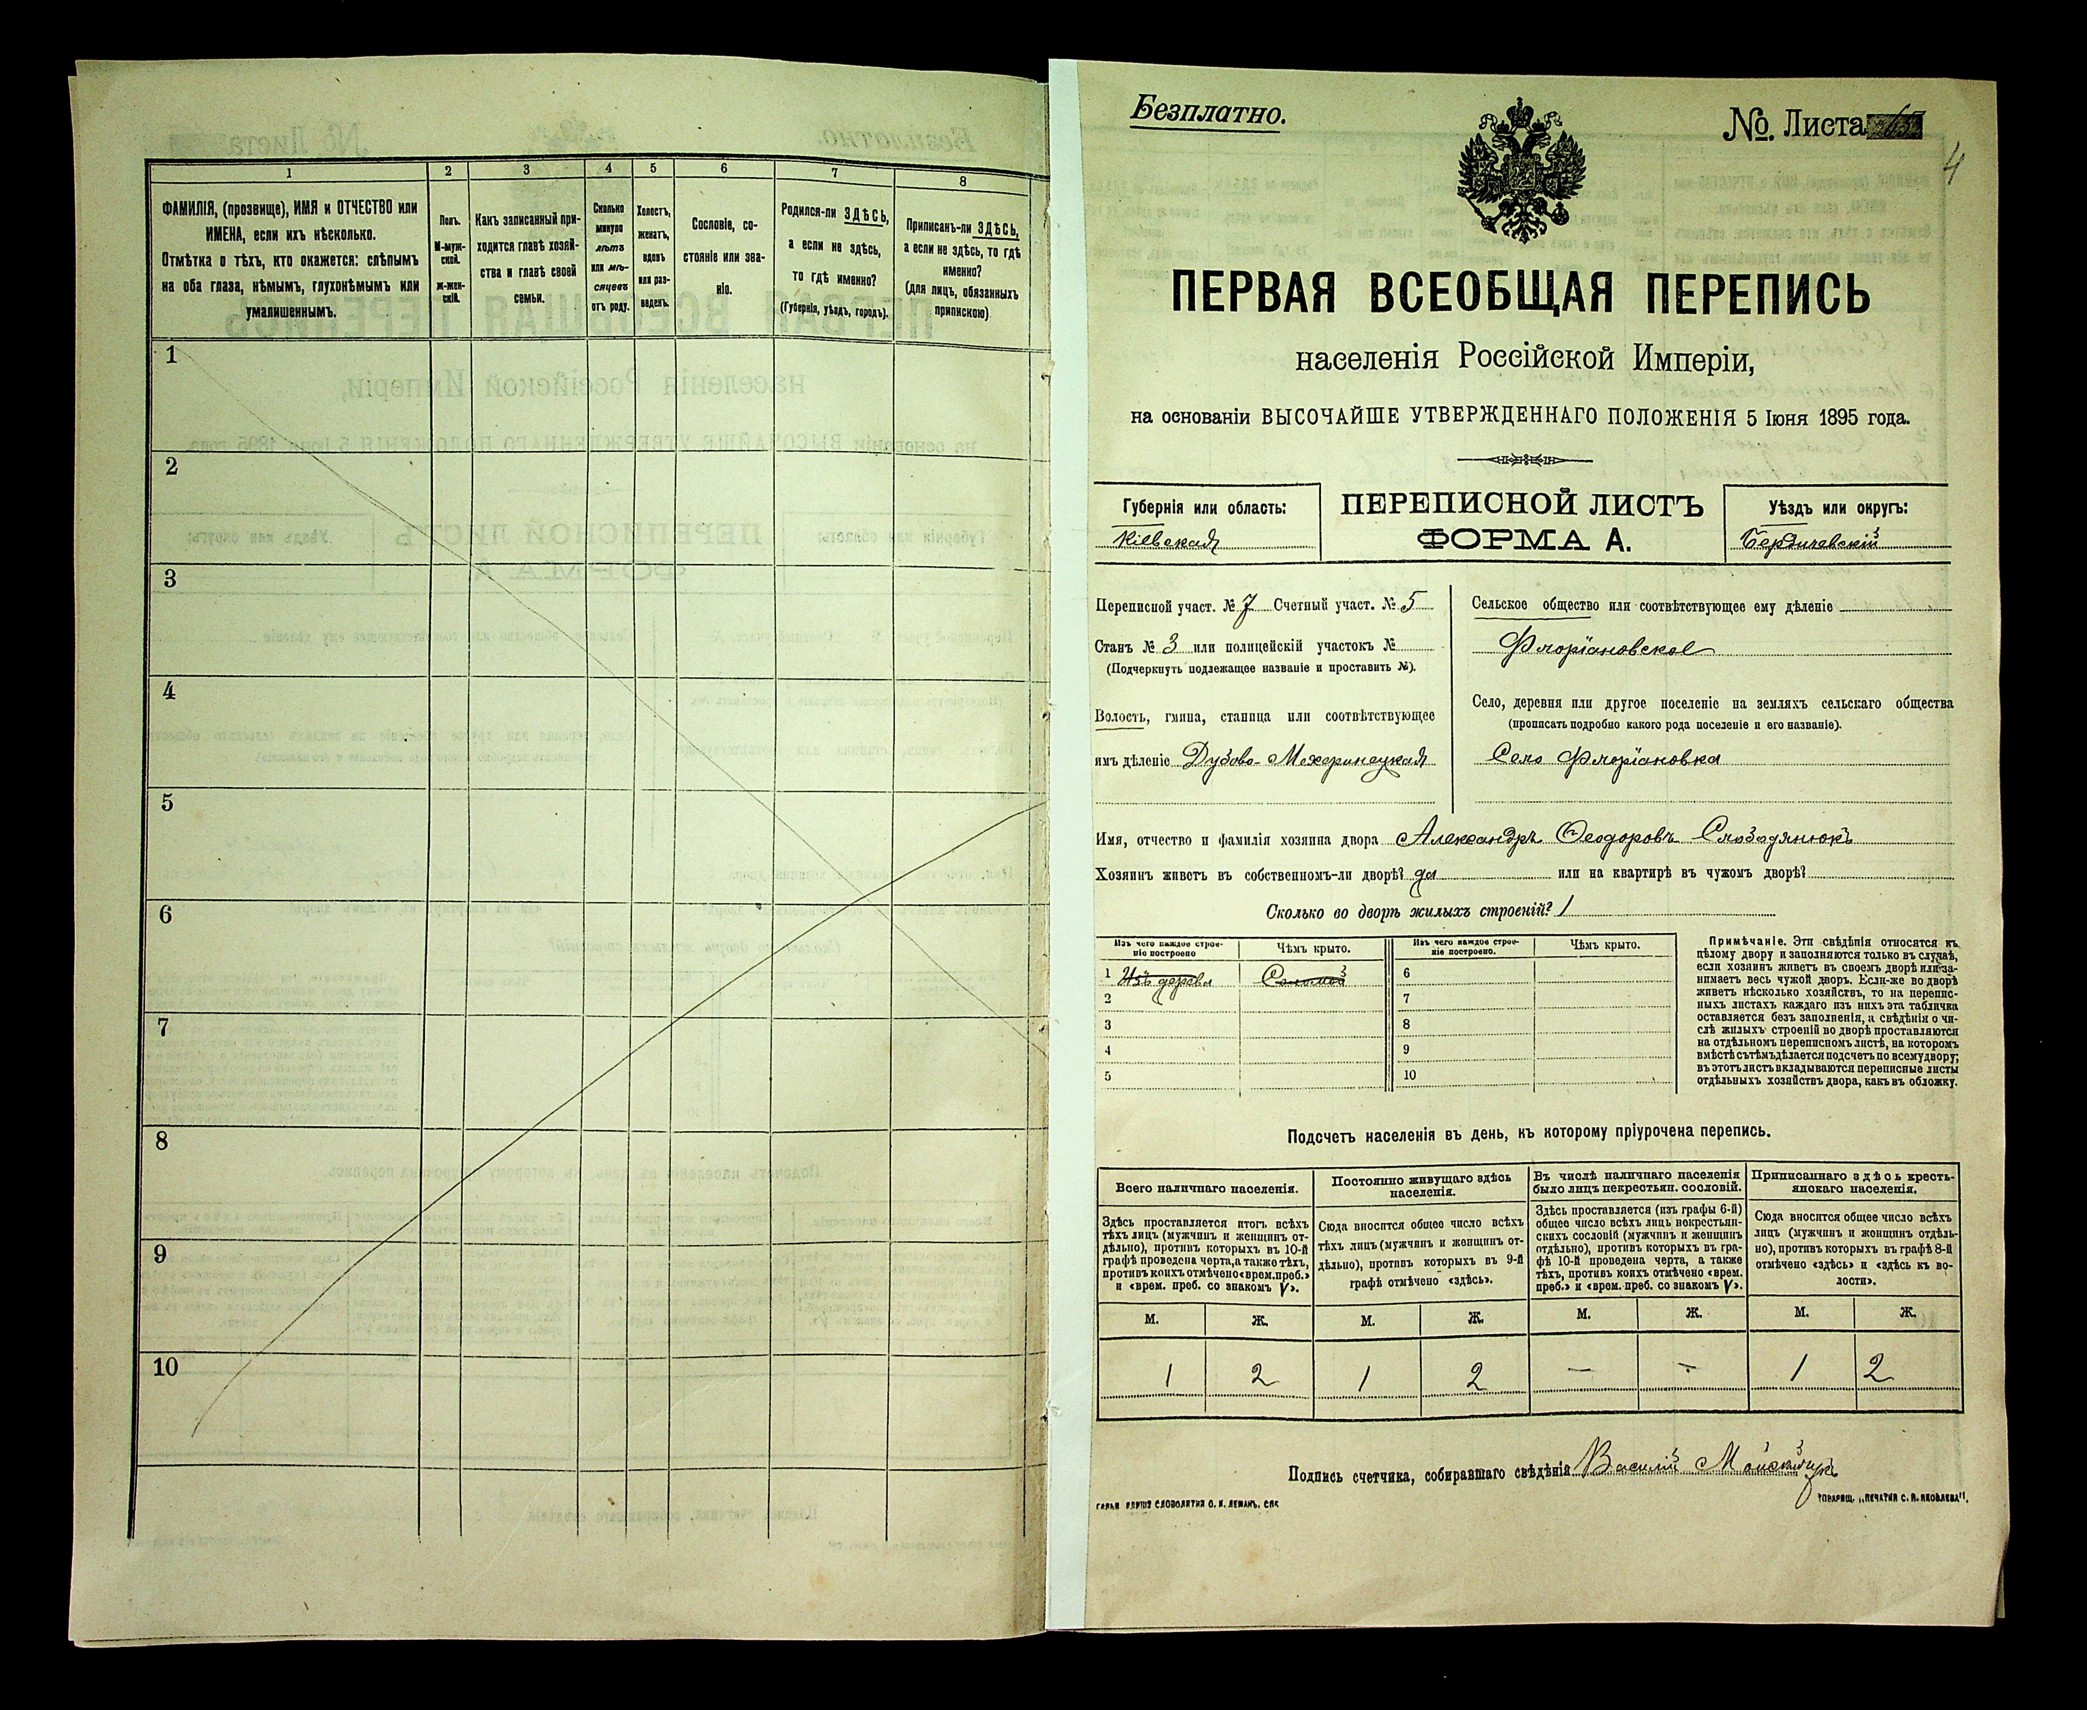 1
2
3
4
5
6
7
8
ФАМИЛІЯ, (прозвище), ИМЯ и ОТЧЕСТВО или
ИМЕНА, если ихъ нѣсколько.
Отмѣтка о тѣхъ, кто окажется: слѣпымъ
на оба глаза, нѣмымъ, глухонѣмымъ или
умалишеннымъ.
Полъ.
М-муж-
ской.
ж-жен-
скій.
Какъ записанный при-
ходится главѣ хозяй-
ства и главѣ своей
семьи.
Сколько
минуло
лѣтъ
или мѣ-
сяцевъ
отъ роду.
Холостъ,
женатъ,
вдовъ
или раз-
веденъ.
Сословіе, со-
стояніе или зва-
ніе.
Родился-ли ЗДѢСЬ,
а если не здѣсь,
то гдѣ именно?
(Губернія, уѣздъ, городъ).
Приписанъ-ли ЗДѢСЬ,
а если не здѣсь, то гдѣ
именно?
(для лицъ, обязанныхъ
припискою)
1
2
3
4
5
6
7
8
9
10
Безплатно.
№. Листа
4
ПЕРВАЯ ВСЕОБЩАЯ ПЕРЕПИСЬ
населенія Россійской Имперіи,
на основаніи ВЫСОЧАЙШЕ УТВЕРЖДЕННАГО ПОЛОЖЕНІЯ 5 Іюня 1895 года.
Губернія или область:
Кіевская
ПЕРЕПИСНОЙ ЛИСТЪ
ФОРМА А.
Уѣздъ или округъ:
Бердичевскій
Переписной участ. № 7 Счетный участ. № 5
Станъ № 3 или полицейскій участокъ №
(Подчеркнуть подлежащее названіе и проставить №).
Волость, гмина, станица или соотвѣтствующее
имъ дѣленіе Дубово-Махаринецкая
Сельское общество или соотвѣтствующее ему дѣленіе
Флоріановское
Село, деревня или другое поселеніе на земляхъ сельскаго общества
(прописать подробно какого рода поселеніе и его названіе).
Село Флоріановка
Имя, отчество и фамилія хозяина двора Александръ Ѳеодоровъ Слободянюкъ
Хозяинъ живетъ въ собственномъ-ли дворѣ? да или на квартирѣ въ чужомъ дворѣ?
Сколько во дворѣ жилыхъ строеній? 1
Изъ чего каждое строе-
ніе построено
Чѣмъ крыто.
Изъ чего каждое строе-
ніе построено.
Чѣмъ крыто.
1 Изъ дерева Соломой
2
3
4
5
6
7
8
9
10
Примѣчаніе. Эти свѣдѣнія относятся къ
цѣлому двору и заполняются только въ случаѣ,
если хозяинъ живетъ въ своемъ дворѣ или за-
нимаетъ весь чужой дворъ. Если-же во дворѣ
живетъ нѣсколько хозяйствъ, то на перепис-
ныхъ листахъ каждаго изъ нихъ эта табличка
оставляется безъ заполненія, а свѣдѣнія о чи-
слѣ жилыхъ строеній во дворѣ проставляются
на отдѣльномъ переписномъ листѣ, на которомъ
вмѣстѣ съ тѣмъ дѣлается подсчетъ по всему двору;
въ этотъ листъ вкладываются переписные листы
отдѣльныхъ хозяйствъ двора, какъ въ обложку.
Подсчетъ населенія въ день, къ которому пріурочена перепись.
Всего наличнаго населенія.
Постоянно живущаго здѣсь
населенія.
Въ числѣ наличнаго населенія
было лицъ некрестьян. сословій.
Приписаннаго здѣсь кресть-
янскаго населенія.
Здѣсь проставляется итогъ всѣхъ
тѣхъ лицъ (мужчинъ и женщинъ от-
дѣльно), противъ которыхъ въ 10-й
графѣ проведена черта, а также тѣхъ,
противъ коихъ отмѣчено «врем. преб.»
и «врем. преб. со знакомъ V».
Сюда вносится общее число всѣхъ
тѣхъ лицъ (мужчинъ и женщинъ от-
дѣльно), противъ которыхъ въ 9-й
графѣ отмѣчено «здѣсь».
Здѣсь проставляется (изъ графы 6-й)
общее число всѣхъ лицъ некрестьян-
скихъ сословій (мужчинъ и женщинъ
отдѣльно), противъ которыхъ въ гра-
фѣ 10-й проведена черта, а также
тѣхъ, противъ коихъ отмѣчено «врем.
преб.» и «врем. преб. со знакомъ V».
Сюда вносится общее число всѣхъ
лицъ (мужчинъ и женщинъ отдѣль-
но), противъ которыхъ въ графѣ 8-й
отмѣчено «здѣсь» и «здѣсь къ во-
лости».
М. Ж. М. Ж. М. Ж. М. Ж.
1 2 1 2 — - 1 2
Подпись счетчика, собиравшаго свѣдѣнія Василій
СЛОВОЛИТНЯ О. И. ЛЕМАНЪ. СПБ
ТОВАРИЩ. „ПЕЧАТНЯ С. П. ЯКОВЛЕВА".